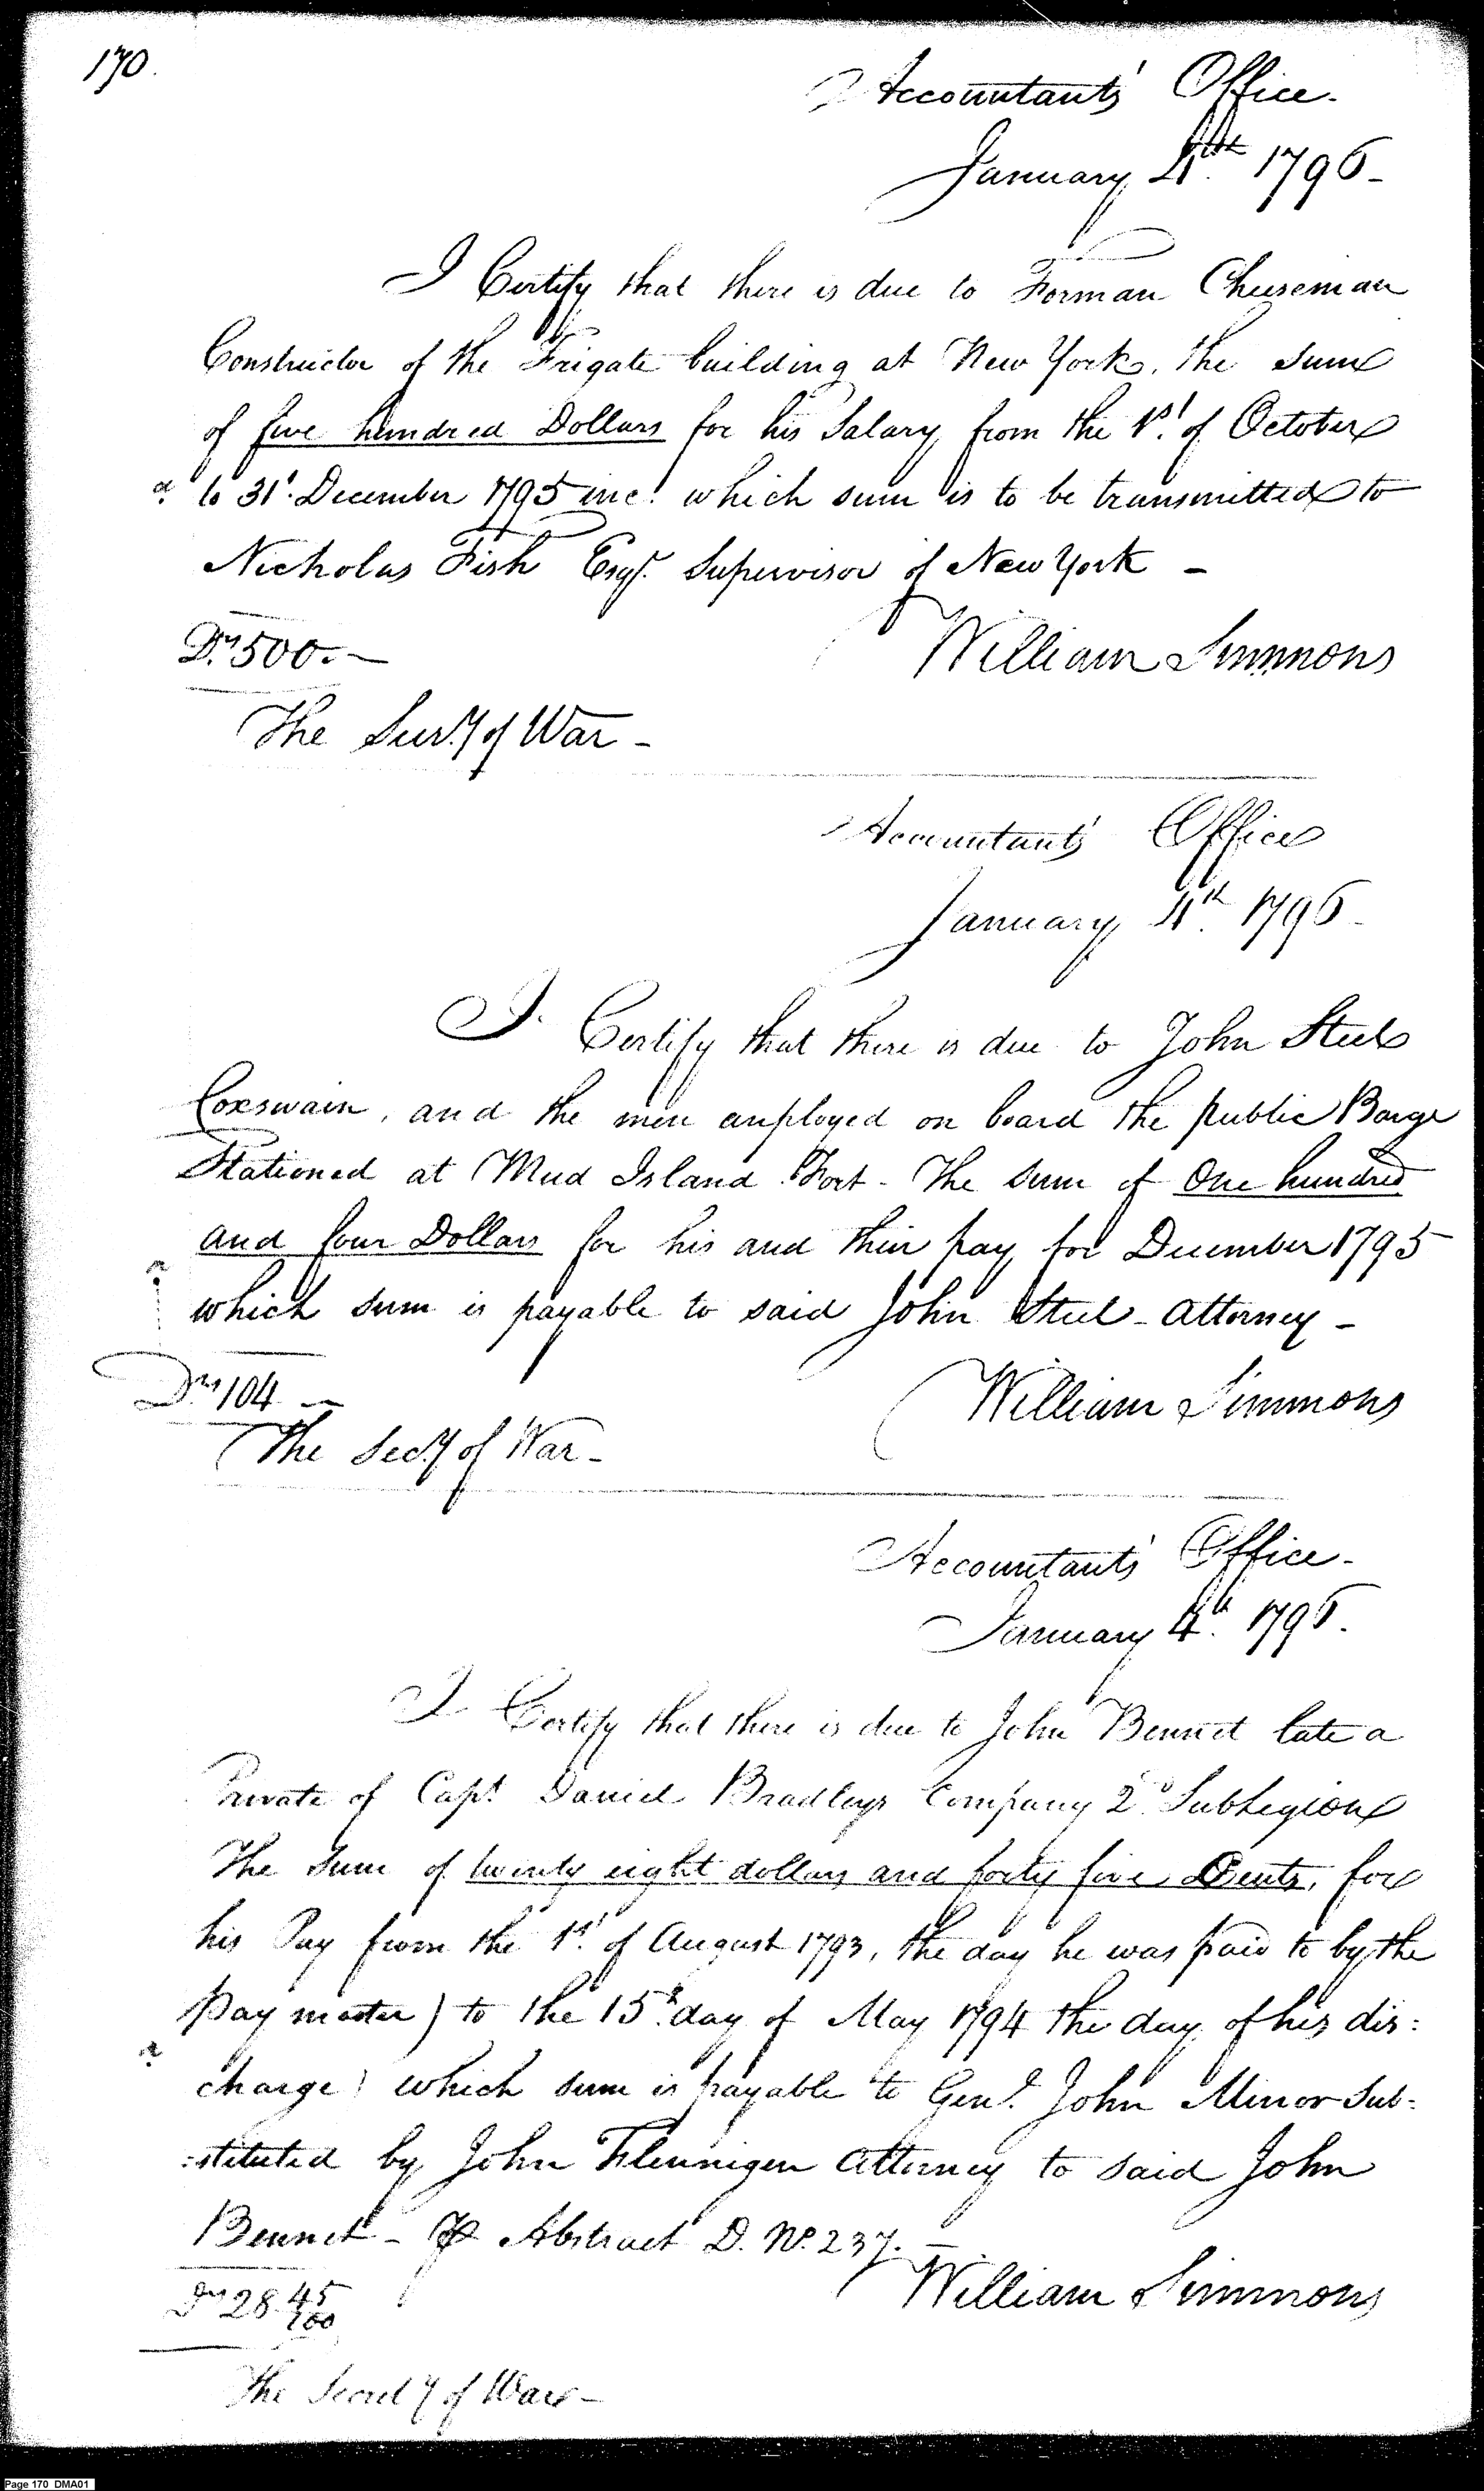 170.
Accountants' Office.
January 4th 1796-
I Certify that there is due to Forman Cheeseman
Constructor of the Frigate building at New York, the sum
of five hundred Dollars for his Salary from the 1st. of October
to 31t. December 1795 inc: which sum is to be transmitted to
Nicholas Fish Esqr. Supervisor of New York -
Drs 500.-
William Simmons
The Secy of War -
Accountants' Office
January 4th. 1796
I Certify that there is due to John Steel
Coxswain, and the men employed on board the public Barge
Stationed at Mud Island Fort - The sum of One hundred
and four Dollars for his and their pay for December 1795
which sum is payable to said John Steel - Attorney -
Drs 104 -
William Simmons
The Secy of War -
Accountants' Office -
January 4th. 1796.
I Certify that there is due to John Bennet late a
Private of Capt. Daniel Bradleys Company 2d SubLegion
The Sum of twenty eight dollars and forty five Cents, for
his Pay from the 1st. of August 1793, the day he was paid to by the
Pay master) to the 15th. day of May 1794 the day of his dis:
charge) which sum is payable to Genl. John Minor Sub:
:stituted by John Flennigen Attorney to said John
Bennet - Abstract D. No. 237. -
Drs 28 45/100
William Simmons
The Secrety of War -
Page 170 DMA01